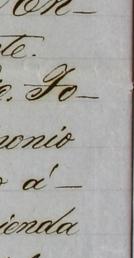 On—
te.
e. Jo—
monio
o á—
ienda